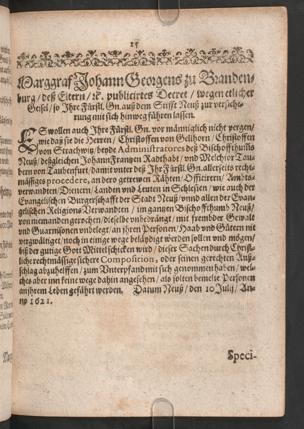 15
Marggraf Johann Georgens zu Branden-
burg / deß Eltern / ꝛc. publicirtes Decret / wegen etlicher
Geisel / so Ihre Fürstl. Gn. auß dem Stifft Neuß zur versiche-
rung mit sich hinweg führen lassen.
ES wollen auch Ihre Fürstl. Gn. vor männiglich nicht bergen /
wie daß sie die Herren / Christoffen von Gellhorn / Christoffen
von Strachwitz / beyde Administratores deß Bischoffthumbs
Neuß / deßgleichen Johann Frantzen / und Melchior Tau-
bern von Taubenfurt / damit unter deß Ihr Fürstl. Gn. allerseits recht-
mässiges procedere, an dero getrewen Rähten / Officirern / Ambts-
verwandten / Dienern / Landen und Leuten in Schlesien / wie auch der
Evangelischen Burgerschafft der Stadt Neuß / unnd allen der Evan-
gelischen Religions Verwandten / im gantzen Bischoffthumb Neuß /
von niemanden gerochen / dieselbe unbedrängt / mit frembder Gewalt
und Guarnisonen unbelegt / an ihren Personen / Haab und Gütern nit
vergwältiget / noch in einige wege belaidiget werden sollen und mögen /
biß der gütige Gott Mittel schicken wird / dieser Sachen durch Christ-
liche rechtmässige sichere Composition, oder seinen gerechten Auß-
schlag abzuhelffen / zum Unterpfand mit sich genommen haben / wel-
ches aber inn keine wege dahin angesehen / als solten bemelte Personen
an ihrem Leben gefährt werden. Datum Neuß / den 10 Julij / An-
no 1621.
Speci-